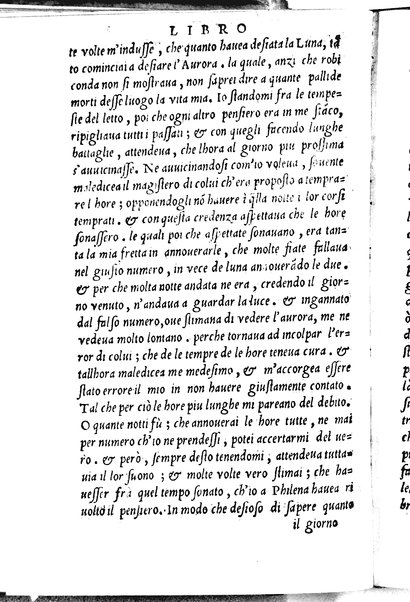 LIBRO
te volte m'indusse, che quanto hauea desiata la Luna, tã
to cominciai a desiare l'Aurora. la quale, anzi che rubi
conda non si mostraua, non saprei dire a quante pallide
morti desse luogo la vita mia. Io standomi fra le tempe-
ste del letto, poi che ogni altro pensiero era in me stãco,
ripigliaua tutti i passati; & con quegli facendo lunghe
battaglie, attendeua, che lhora al giorno piu prossima
s'auuicinasse. Ne auuicinandosi com'io voleua, souente
maledicea il magistero di colui ch'era proposto a tempra-
re l hore; opponendogli nõ hauere i q̃lla notte i lor corsi
temprati. & con questa credenza aspettaua che le hore
sonassero. le quali poi che aspettate sonauano, era tan-
ta la mia fretta in annouerarle, che molte fiate fallaua
nel giusto numero, in vece de luna annouerãdo le due.
& per che molta notte andata ne era, credendo il gior-
no venuto, n'andaua a guardar la luce. & ingannato
dal falso numero, oue stimana di vedere l'aurora, me ne
vedeua molto lontano. perche tornaua ad incolpar l'er-
ror di colui; che de le tempre de le hore teneua cura. &
tallhora maledicea me medesimo, & m'accorgea essere
stato errore il mio in non hauere giustamente contato.
Tal che per ciò le hore piu lunghe mi pareano del debito.
O quante notti fù; che annouerai le hore tutte, ne mai
per numero ch'io ne prendessi, potei accertarmi del ue-
ro. & però, sempre desto tenendomi, attendeua tutta-
uia il lor suono; & molte volte vero stimai; che ha-
uesser frà quel tempo sonato, ch'io a Philena hauea ri
uolto il pensiero. In modo che desioso di sapere quanto
il giorno